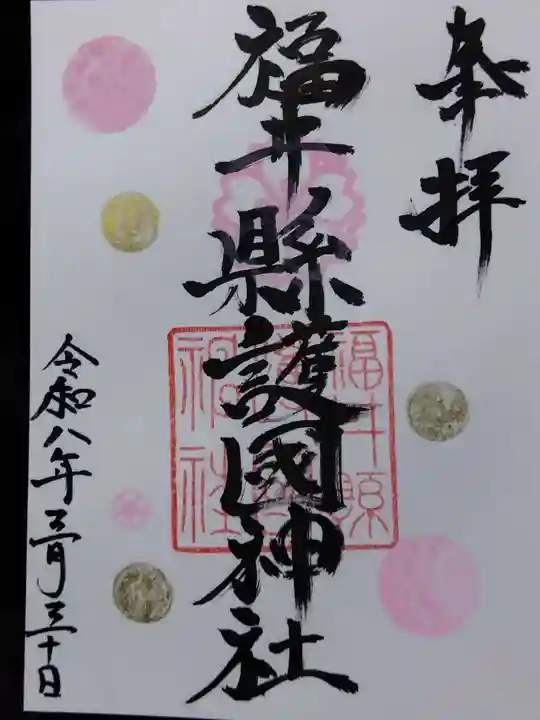 奉拝
福井縣護國神社
福井縣
護國
神社
令和八年三月三十日